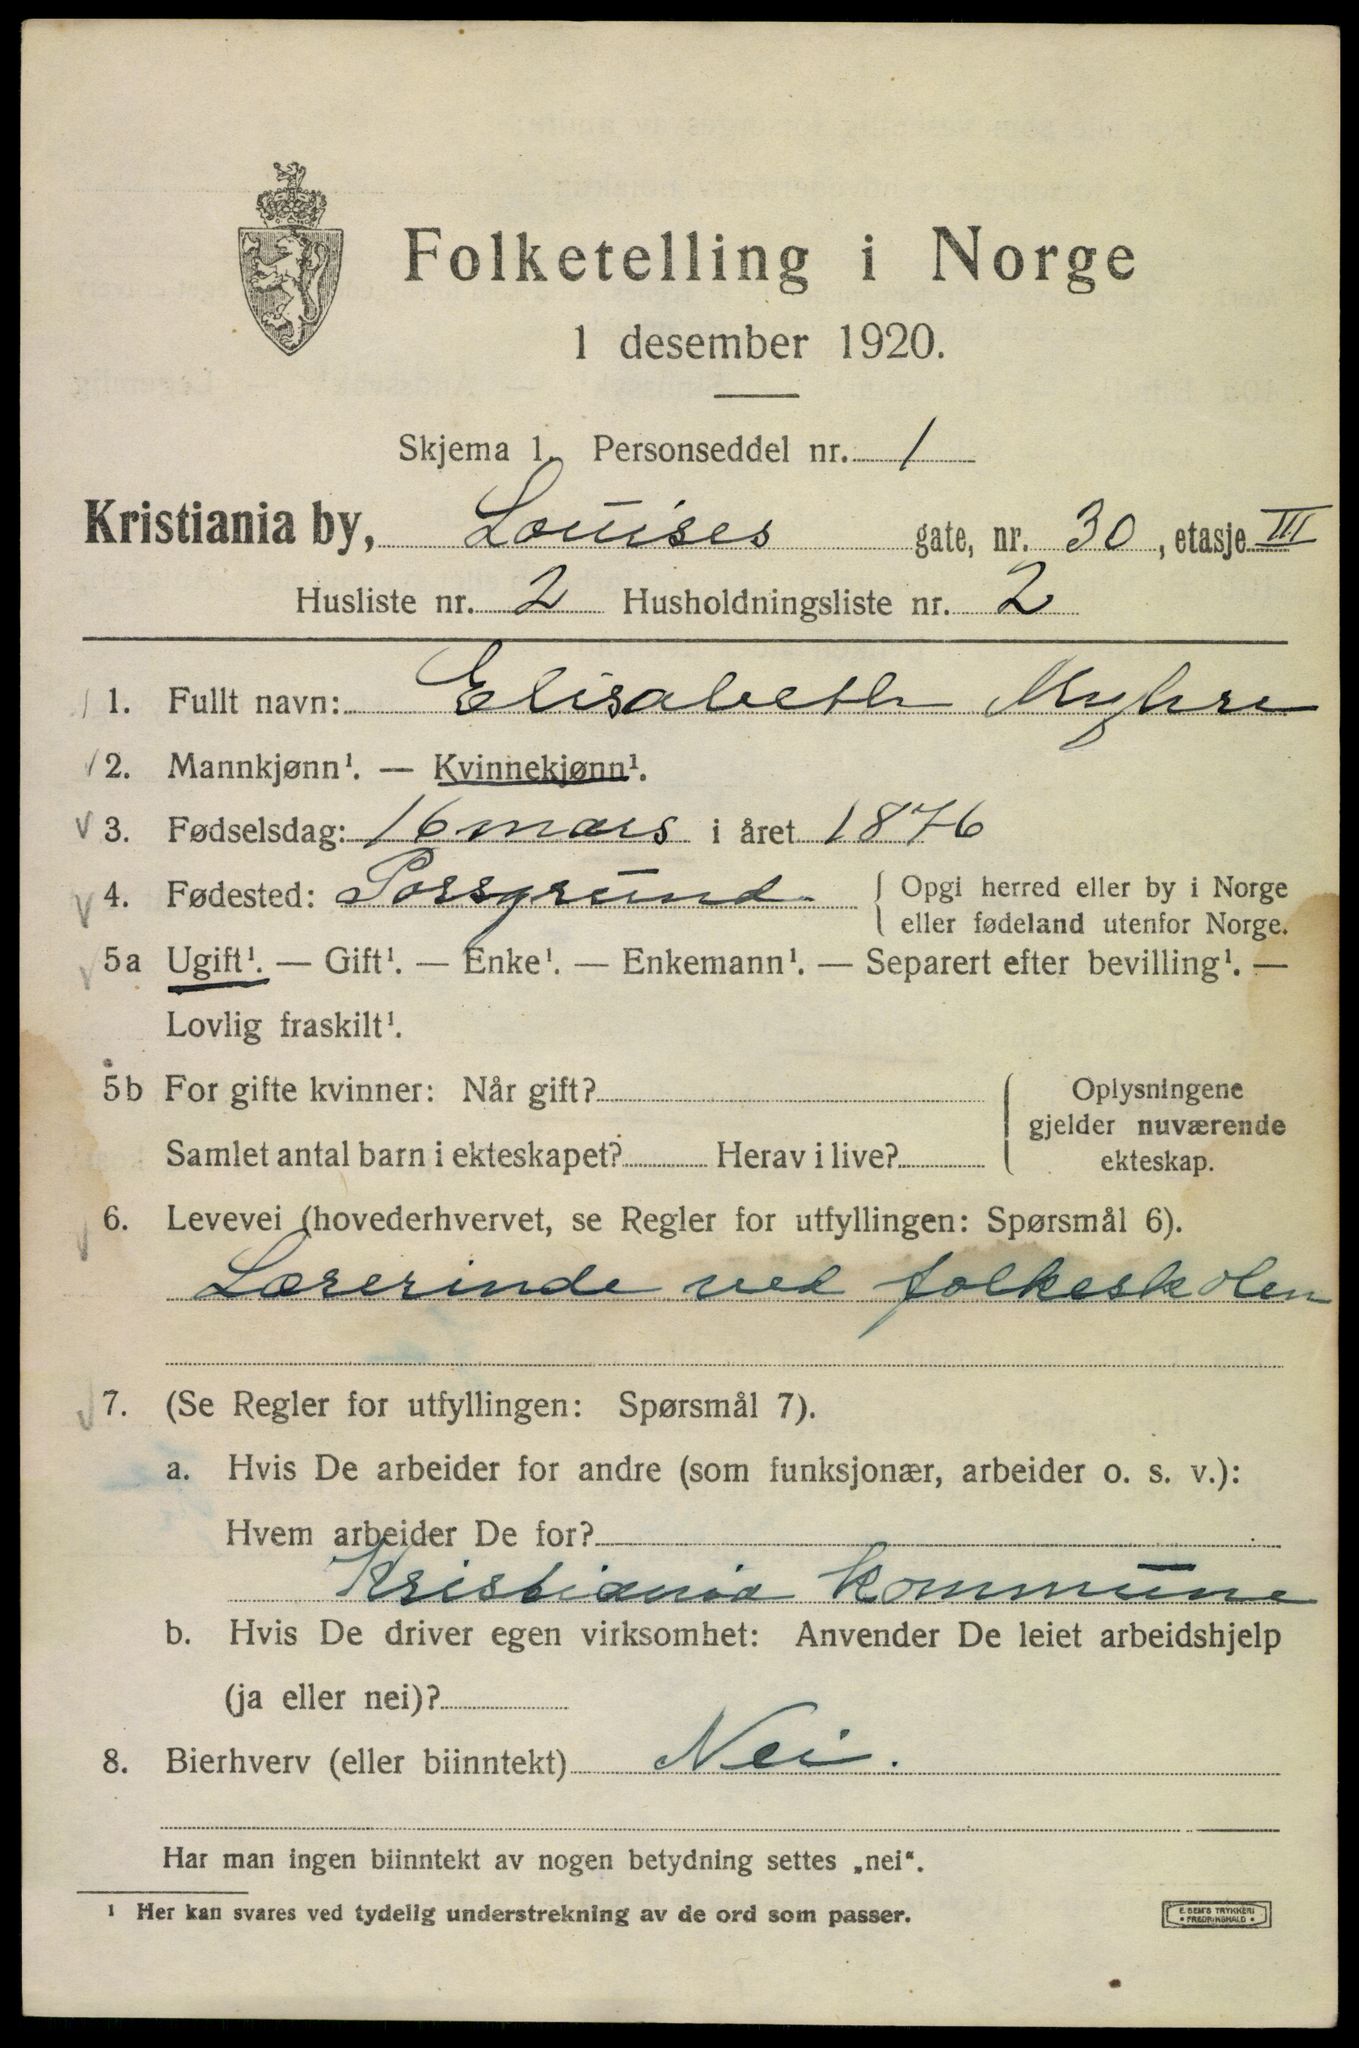 Folketelling i Norge
1 desember 1920.
Skjema 1. Personseddel nr. 1
Kristiania by, Louises gate, nr. 30, etasje III
Husliste nr. 2 Husholdningsliste nr. 2
1. Fullt navn: Elisabeth Myhre
2. Mannkjønn¹. — Kvinnekjønn¹.
3. Fødselsdag: 16 mars i året 1876
4. Fødested: Porsgrund. { Opgi herred eller by i Norge
eller fødeland utenfor Norge.
5a Ugift¹. — Gift¹. — Enke¹. — Enkemann¹. — Separert efter bevilling¹. —
Lovlig fraskilt¹.
5b For gifte kvinner: Når gift?
Samlet antal barn i ekteskapet? Herav i live?
{ Oplysningene
gjelder nuværende
ekteskap.
6. Levevei (hovederhvervet, se Regler for utfyllingen: Spørsmål 6).
Lærerinde ved folkeskolen
7. (Se Regler for utfyllingen: Spørsmål 7).
a. Hvis De arbeider for andre (som funksjonær, arbeider o. s. v.):
Hvem arbeider De for?
Kristiania kommune
b. Hvis De driver egen virksomhet: Anvender De leiet arbeidshjelp
(ja eller nei)?
8. Bierhverv (eller biinntekt) Nei.
Har man ingen biinntekt av nogen betydning settes „nei“.
¹ Her kan svares ved tydelig understrekning av de ord som passer.
E. SEM'S TRYKKERI
• FREDRIKSHALD •